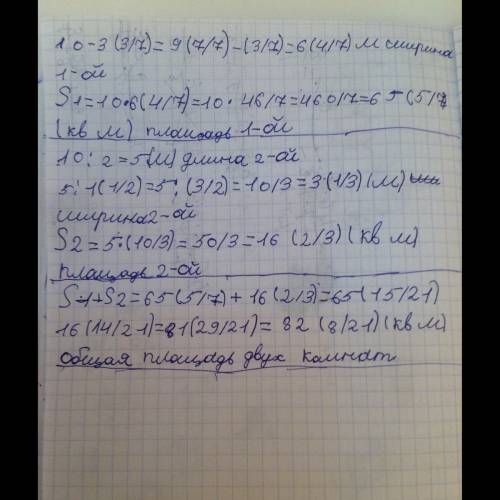 10-3(3/7)=9(7/7)-(3/7)=6(4/7) м ширина
1-ой
S1=10•6(4/7)=10•46/7=460/7=65(5/7
(кв м) площадь 1-ой
10:2=5(м) длина 2-ой
5:1(1/2)=5:(3/2)=10/3=3(1/3)(м)
ширина 2-ой
S2=5•(10/3)=50/3=16(2/3)(кв м)
площадь 2-ой
S1+S2=65(5/7)+16(2/3)=65(15/21)
16(14/21)=81(29/21)=82(8/21)(кв м)
общая площадь двух комнат